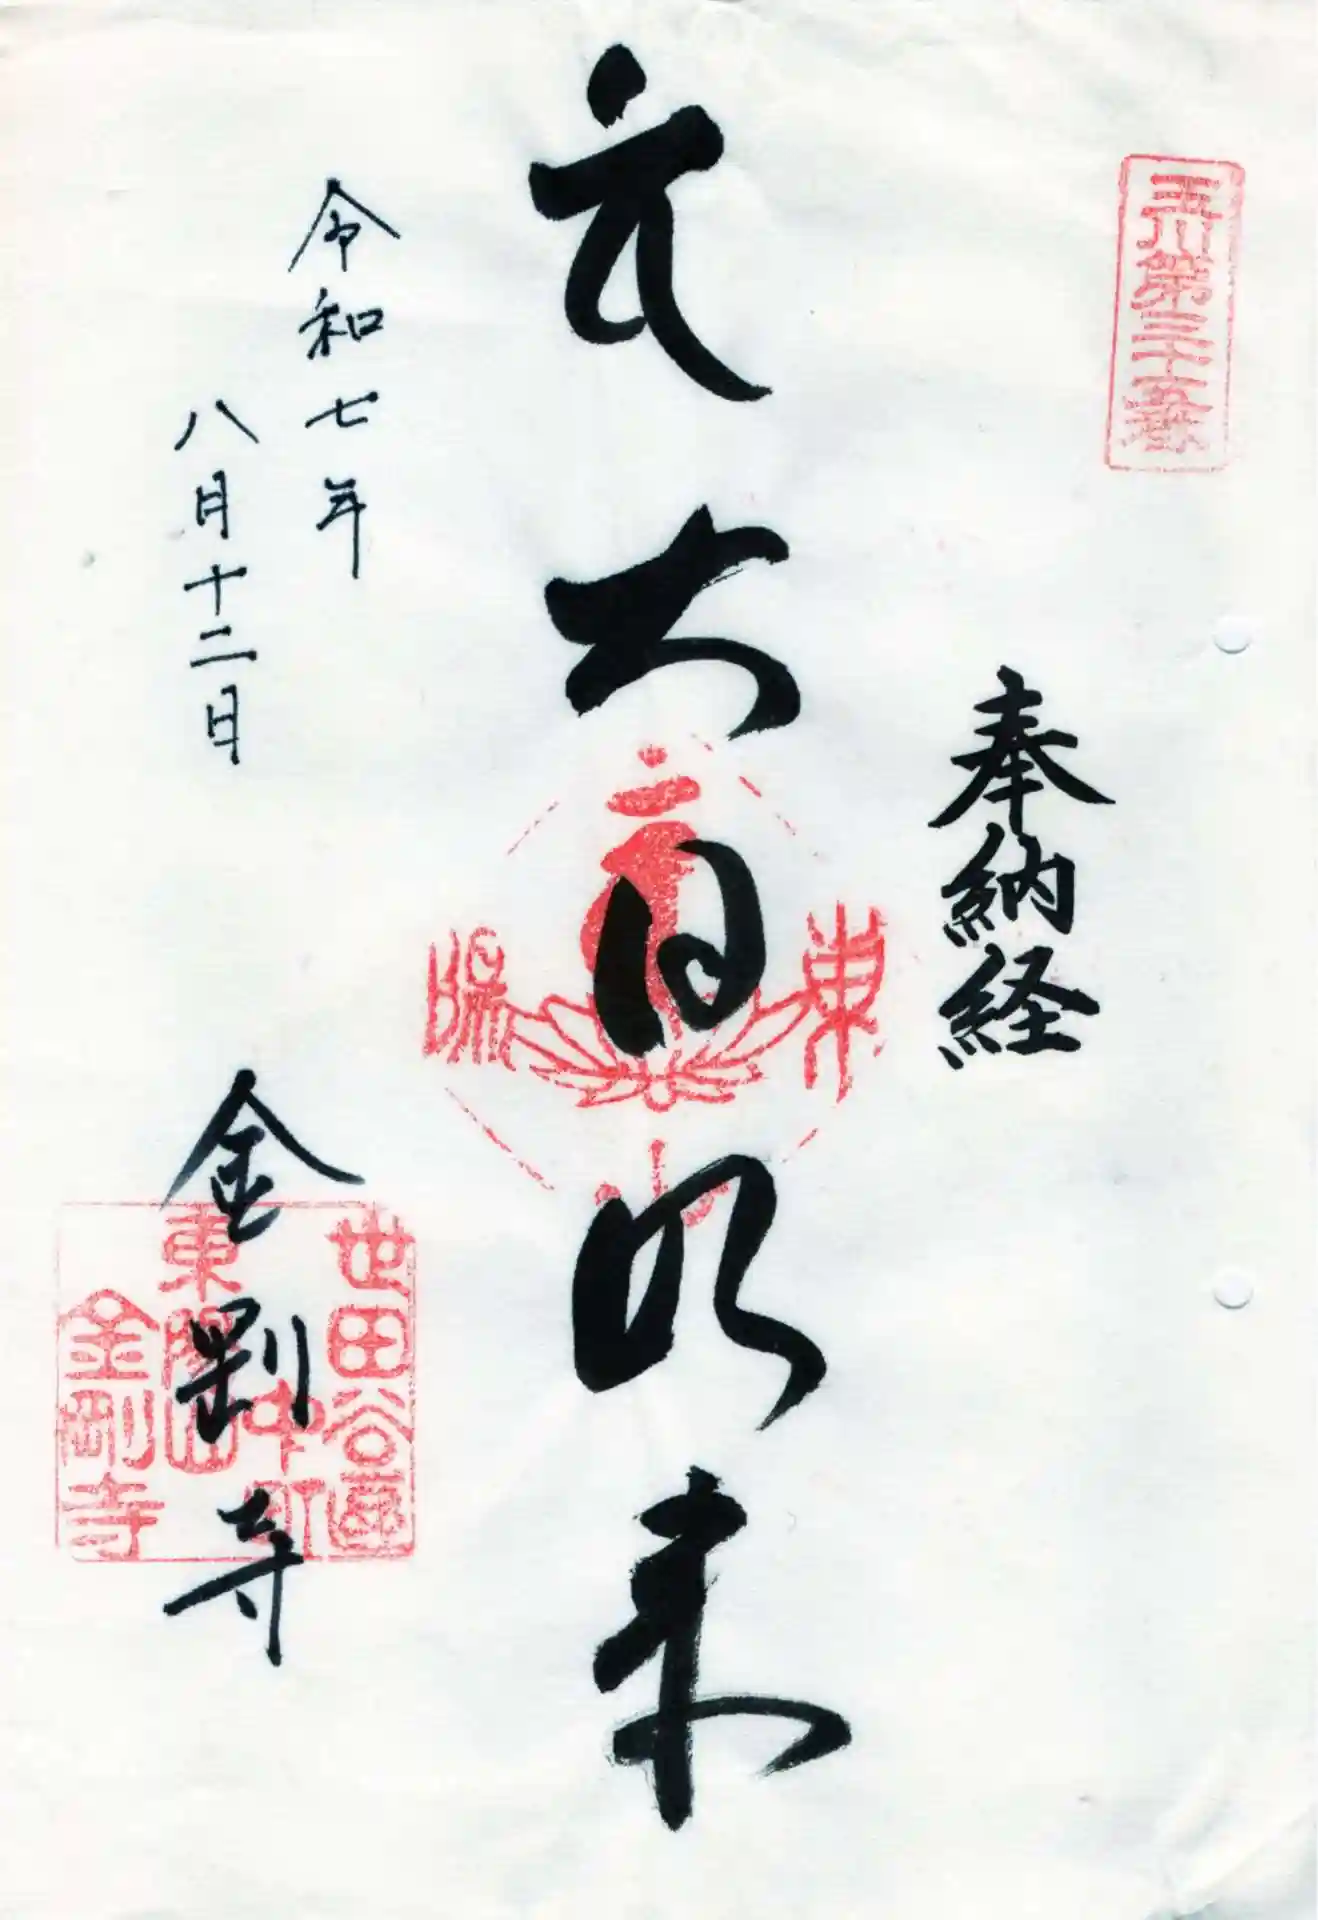 玉川第三十五番
奉納経
大日如来
東陽山
令和七年
八月十二日
金剛寺
世田谷區
中町
東陽山
金剛寺